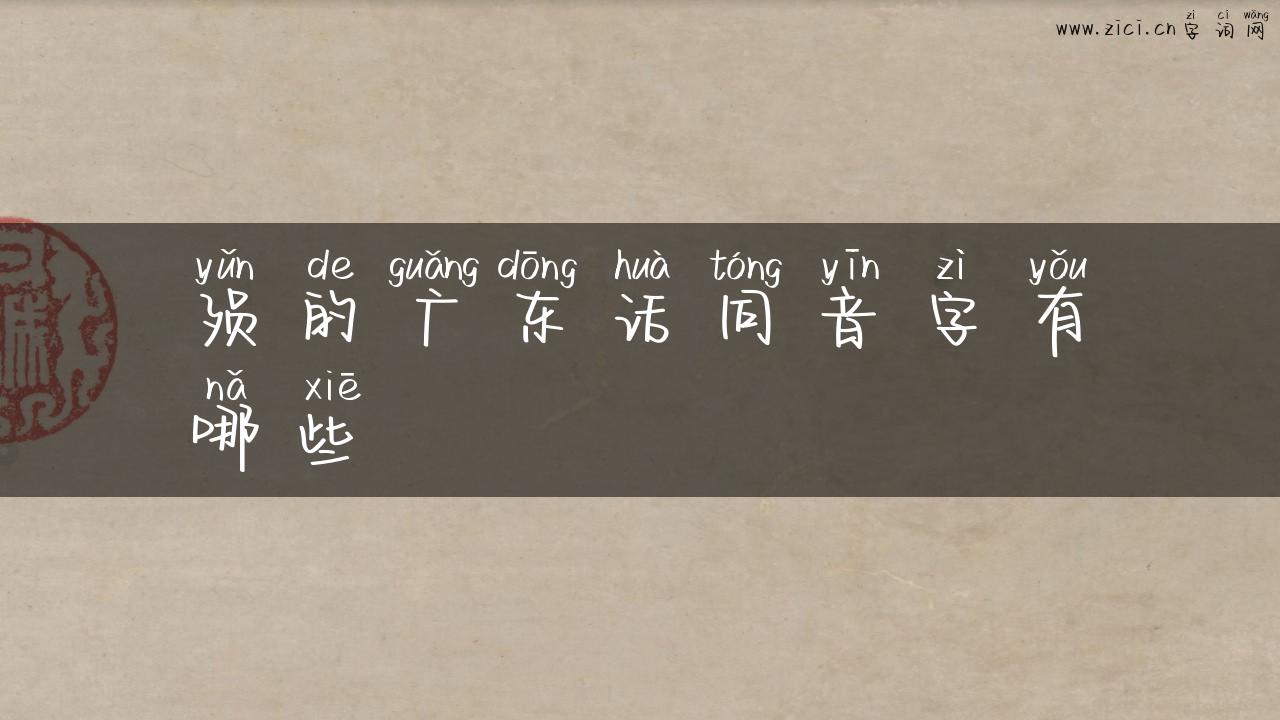 zì cí wǎng
www.zici.cn 字词网
yǔn de guǎng dōng huà tóng yīn zì yǒu
殒的广东话同音字有
nǎ xiē
哪些